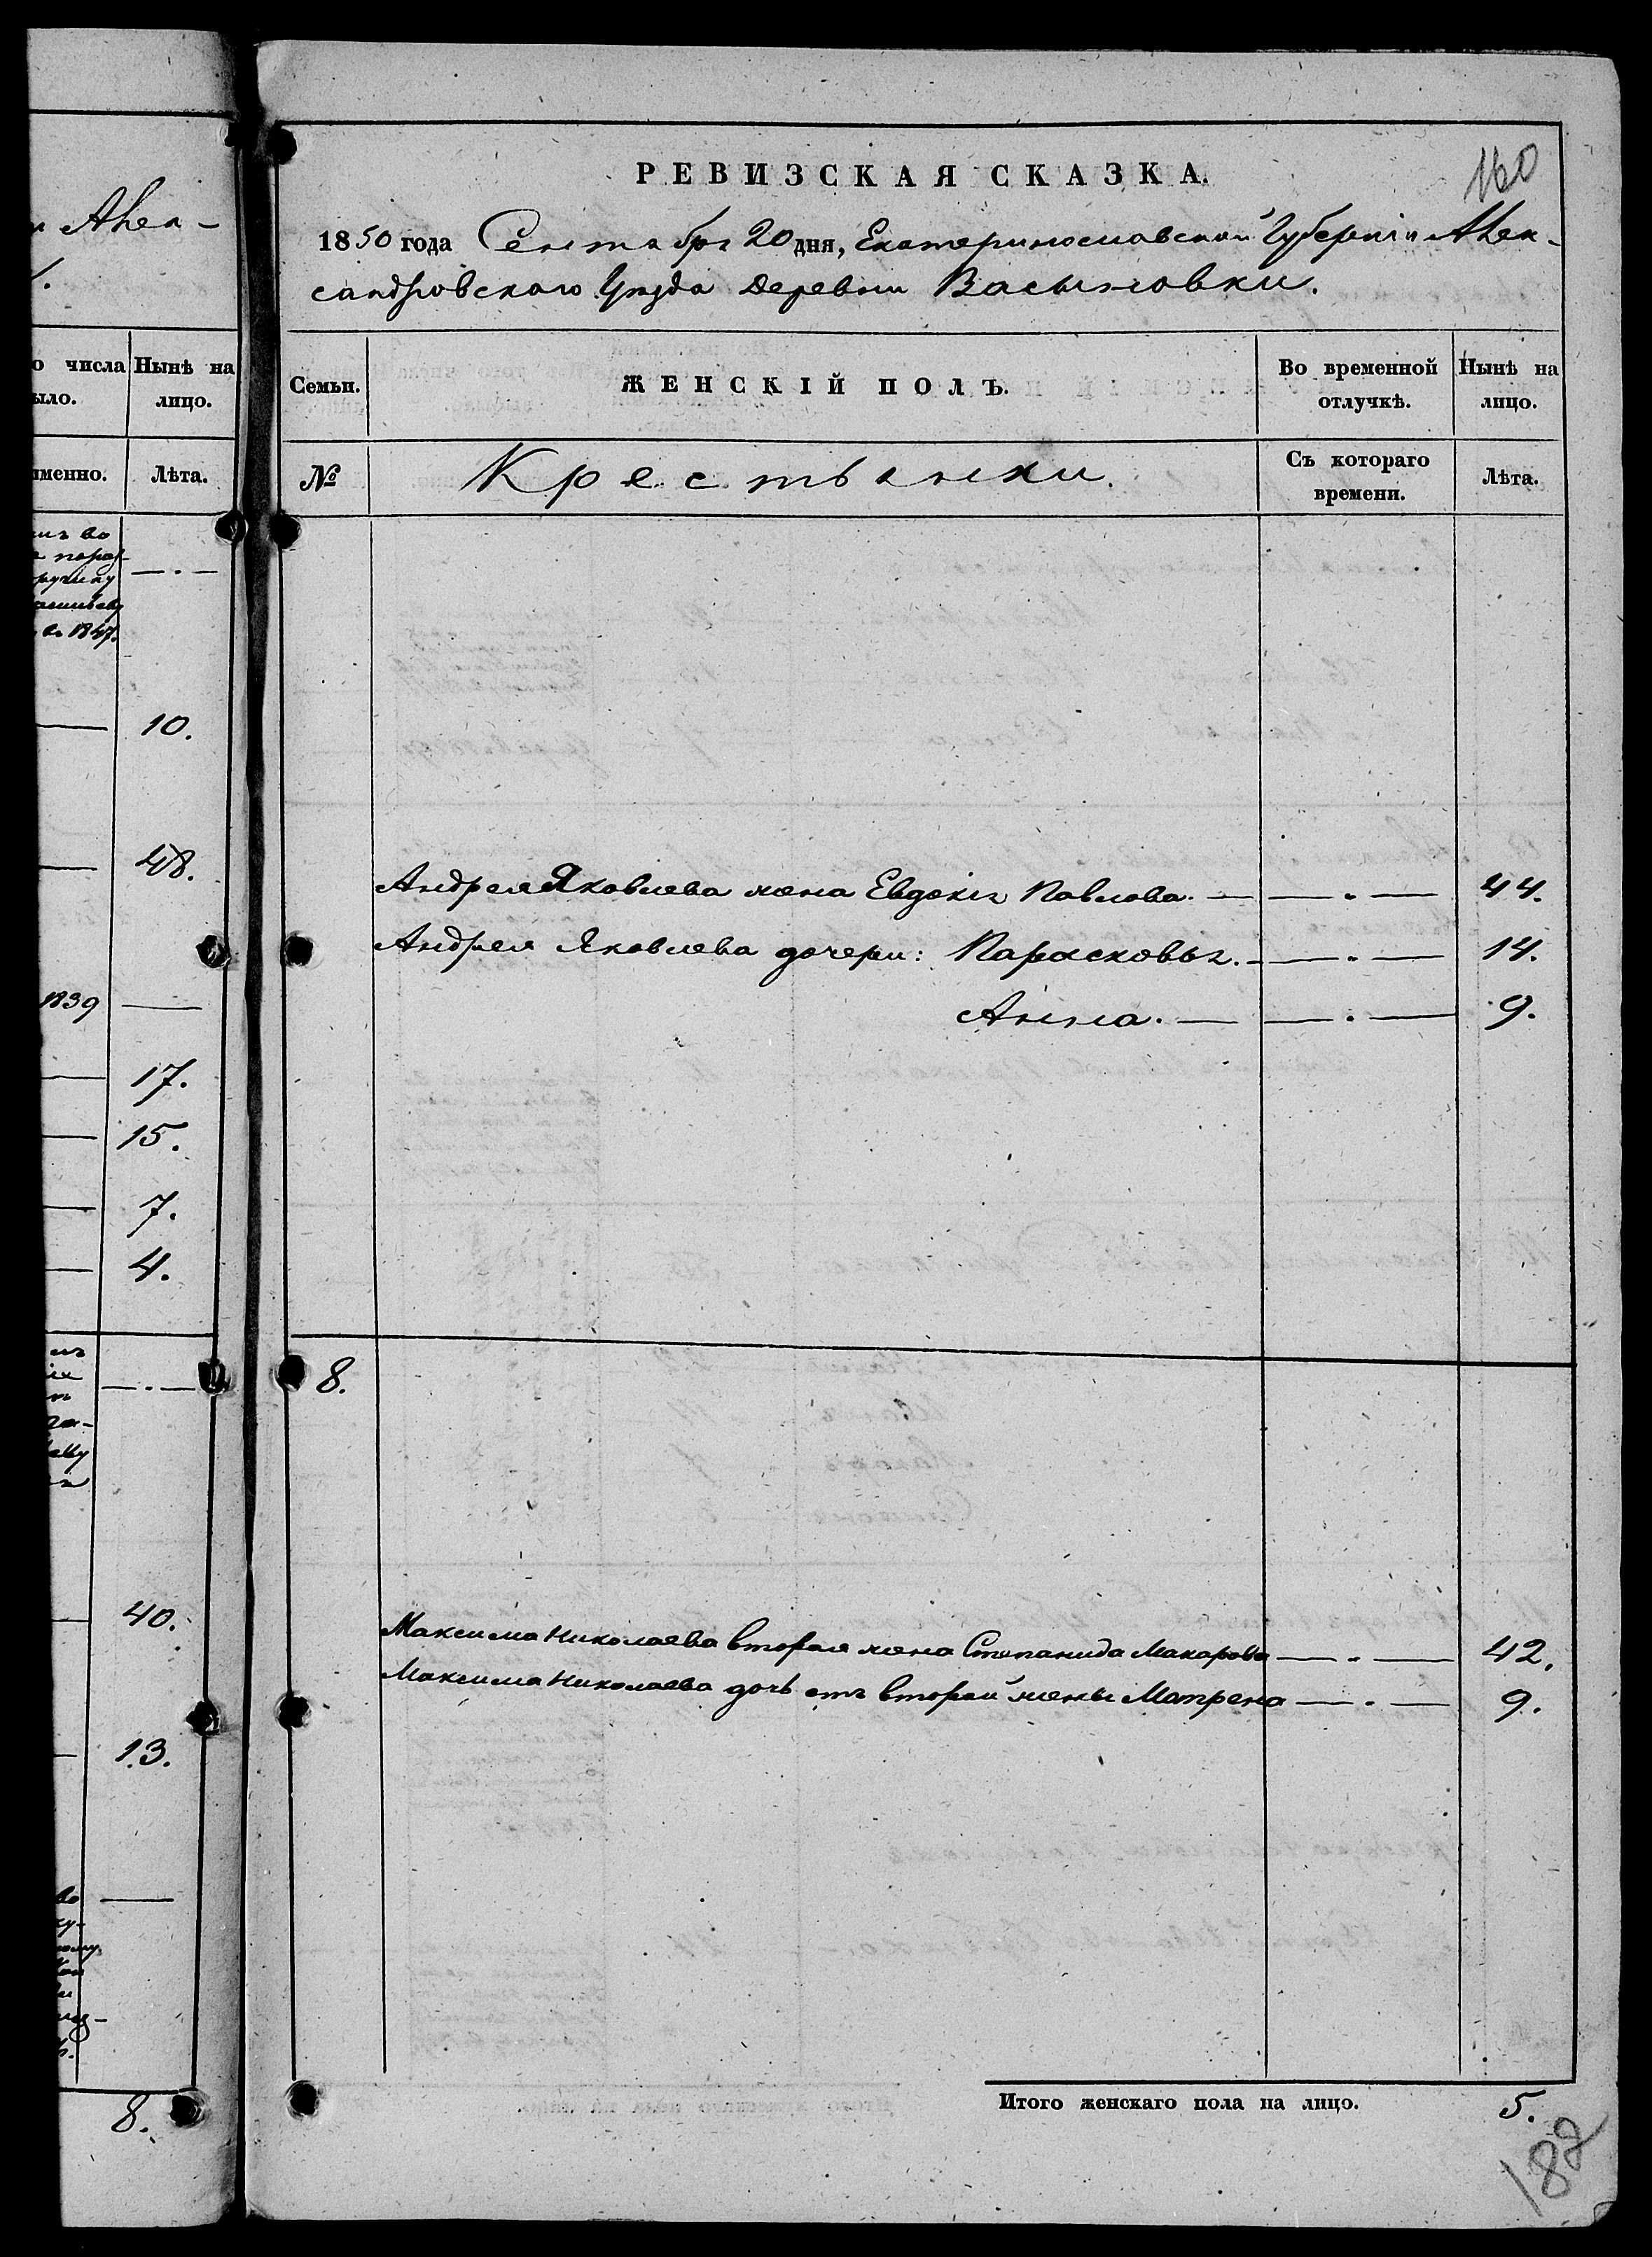 и Алек-
о числа
ыло.
Нынѣ на
лицо.
именно.
Лѣта.
въ 1847.
10.
48.
1839
17.
15.
7.
4.
40.
13.
8.
160
РЕВИЗСКАЯ СКАЗКА.
1850 года Сентября 20 дня, Екатеринославской Губерніи Алек-
сандровскаго Уѣзда деревни Васыновки.
Семьи.
ЖЕНСКІЙ ПОЛЪ.
Во временной
отлучкѣ.
Нынѣ на
лицо.
№
Крестьянки.
Съ котораго
времени.
Лѣта.
Андрея Яковлева жена Евдокія Павлова. — — . — 44.
Андрея Яковлева дочери: Парасковья. — — . — 14.
Анна. — — . — 9.
8.
Максима Николаева вторая жена Степанида Макарова — . — 42.
Максима Николаева дочь отъ второй жены Матрена — . — 9.
Итого женскаго пола на лицо. 5.
188